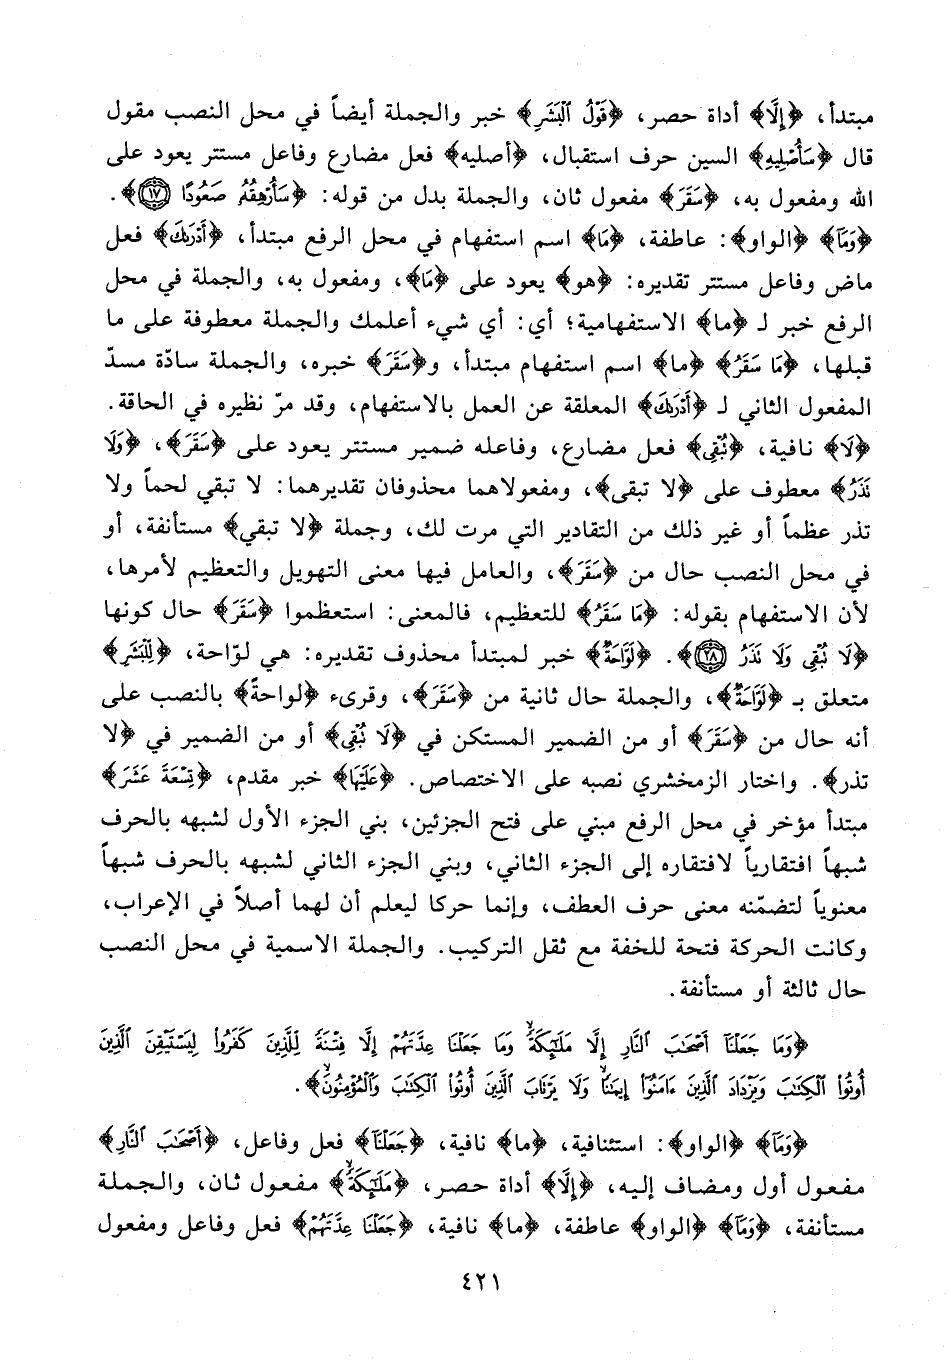 مبتدأ، ﴿إِلَّا﴾ أداة حصر، ﴿قَوْلُ ٱلْبَشَرِ﴾ خبر والجملة أيضاً في محل النصب مقول
قال ﴿سَأُصْلِيهِ﴾ السين حرف استقبال، ﴿أصليه﴾ فعل مضارع وفاعل مستتر يعود على
الله ومفعول به، ﴿سَقَرَ﴾ مفعول ثان، والجملة بدل من قوله: ﴿سَأُرْهِقُهُۥ صَعُودًا ١٧﴾.
﴿وَمَآ﴾ ﴿الواو﴾: عاطفة، ﴿مَا﴾ اسم استفهام في محل الرفع مبتدأ، ﴿أَدْرَىٰكَ﴾ فعل
ماض وفاعل مستتر تقديره: ﴿هو﴾ يعود على ﴿مَا﴾، ومفعول به، والجملة في محل
الرفع خبر لـ ﴿ما﴾ الاستفهامية؛ أي: أي شيء أعلمك والجملة معطوفة على ما
قبلها، ﴿مَا سَقَرُ﴾ ﴿ما﴾ اسم استفهام مبتدأ، و﴿سَقَرَ﴾ خبره، والجملة سادّة مسدّ
المفعول الثاني لـ ﴿أَدْرَىٰكَ﴾ المعلقة عن العمل بالاستفهام، وقد مرّ نظيره في الحاقة.
﴿لَا﴾ نافية، ﴿تُبْقِى﴾ فعل مضارع، وفاعله ضمير مستتر يعود على ﴿سَقَرَ﴾، ﴿وَلَا
نَذَرُ﴾ معطوف على ﴿لا تبقى﴾، ومفعولاهما محذوفان تقديرهما: لا تبقي لحماً ولا
تذر عظماً أو غير ذلك من التقادير التي مرت لك، وجملة ﴿لا تبقي﴾ مستأنفة، أو
في محل النصب حال من ﴿سَقَرَ﴾، والعامل فيها معنى التهويل والتعظيم لأمرها،
لأن الاستفهام بقوله: ﴿مَا سَقَرُ﴾ للتعظيم، فالمعنى: استعظموا ﴿سَقَرَ﴾ حال كونها
﴿لَا تُبْقِى وَلَا تَذَرُ ٢٨﴾. ﴿لَوَّاحَةٌ﴾ خبر لمبتدأ محذوف تقديره: هي لوّاحة، ﴿لِّلْبَشَرِ﴾
متعلق بـ ﴿لَوَّاحَةٌ﴾، والجملة حال ثانية من ﴿سَقَرَ﴾، وقرىء ﴿لواحةً﴾ بالنصب على
أنه حال من ﴿سَقَرَ﴾ أو من الضمير المستكن في ﴿لَا تُبْقِى﴾ أو من الضمير في ﴿لا
تذر﴾. واختار الزمخشري نصبه على الاختصاص. ﴿عَلَيْهَا﴾ خبر مقدم، ﴿تِسْعَةَ عَشَرَ﴾
مبتدأ مؤخر في محل الرفع مبني على فتح الجزئين، بني الجزء الأول لشبهه بالحرف
شبهاً افتقارياً لافتقاره إلى الجزء الثاني، وبني الجزء الثاني لشبهه بالحرف شبهاً
معنوياً لتضمّنه معنى حرف العطف، وإنما حركا ليعلم أن لهما أصلاً في الإعراب،
وكانت الحركة فتحة للخفة مع ثقل التركيب. والجملة الاسمية في محل النصب
حال ثالثة أو مستأنفة.
﴿وَمَا جَعَلْنَآ أَصْحَٰبَ ٱلنَّارِ إِلَّا مَلَٰٓئِكَةً ۙ وَمَا جَعَلْنَا عِدَّتَهُمْ إِلَّا فِتْنَةً لِّلَّذِينَ كَفَرُوا۟ لِيَسْتَيْقِنَ ٱلَّذِينَ
أُوتُوا۟ ٱلْكِتَٰبَ وَيَزْدَادَ ٱلَّذِينَ ءَامَنُوٓا۟ إِيمَٰنًا ۙ وَلَا يَرْتَابَ ٱلَّذِينَ أُوتُوا۟ ٱلْكِتَٰبَ وَٱلْمُؤْمِنُونَ ۙ﴾.
﴿وَمَآ﴾ ﴿الواو﴾: استئنافية، ﴿ما﴾ نافية، ﴿جَعَلْنَآ﴾ فعل وفاعل، ﴿أَصْحَٰبَ ٱلنَّارِ﴾
مفعول أول ومضاف إليه، ﴿إِلَّا﴾ أداة حصر، ﴿مَلَٰٓئِكَةً ۙ﴾ مفعول ثان، والجملة
مستأنفة، ﴿وَمَآ﴾ ﴿الواو﴾ عاطفة، ﴿ما﴾ نافية، ﴿جَعَلْنَا عِدَّتَهُمْ﴾ فعل وفاعل ومفعول
٤٢١